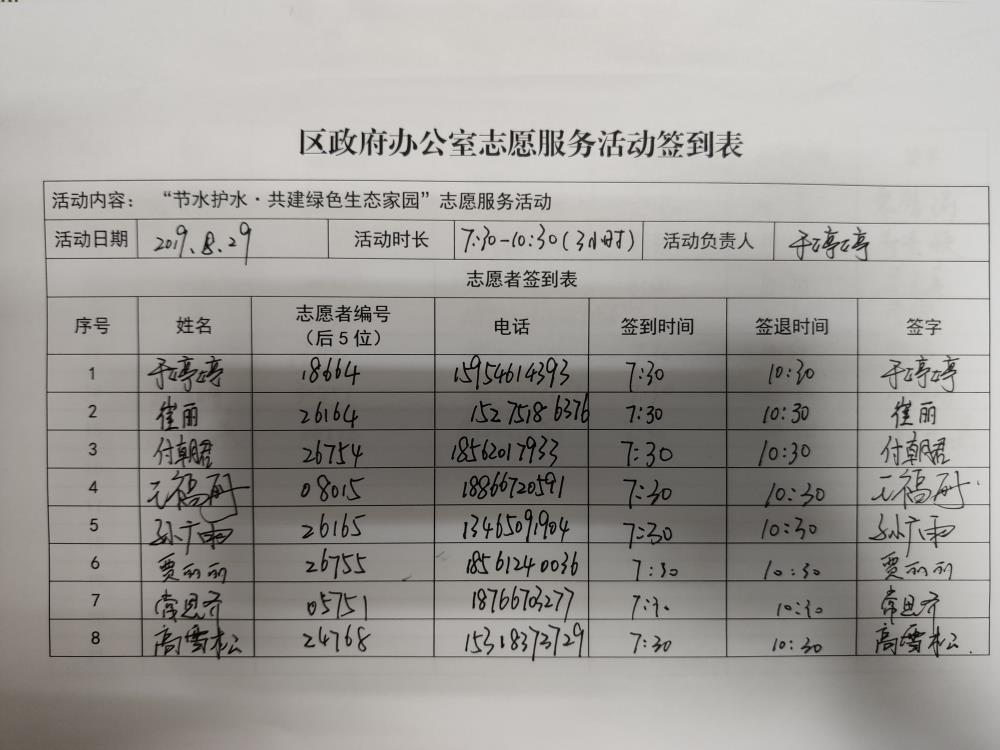 区政府办公室志愿服务活动签到表
活动内容： “节水护水·共建绿色生态家园”志愿服务活动
活动日期 2019.8.29 活动时长 7:30-10:30(3小时) 活动负责人 于婷婷
志愿者签到表
序号 姓名 志愿者编号（后5位） 电话 签到时间 签退时间 签字
1 于婷婷 18664 15954614393 7:30 10:30 于婷婷
2 崔丽 26164 15275186376 7:30 10:30 崔丽
3 付朝君 26754 18562017933 7:30 10:30 付朝君
4 08015 18866720591 7:30 10:30
5 孙广雨 26165 13465091904 7:30 10:30 孙广雨
6 贾丽丽 26755 18561240036 7:30 10:30 贾丽丽
7 常思齐 05751 18766703277 7:30 10:30 常思齐
8 高雪松 24768 15318373729 7:30 10:30 高雪松